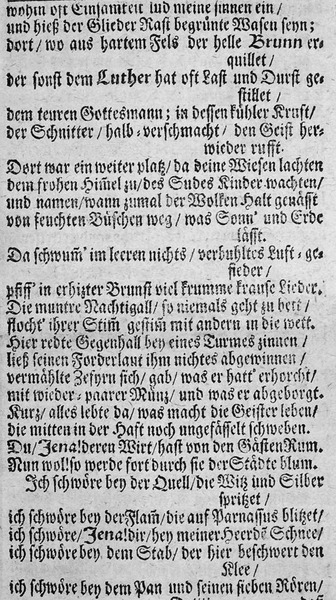 wohin oft Einsamkeit lud meine sinnen ein/
und hieß der Glieder Rast begrünte Wasen seyn;
dort/ wo aus hartem Fels der helle Brunn er-
quillet/
der sonst dem Luther hat oft Last und Durst ge-
stillet/
dem teuren Gottesmann; in dessen kühler Kruft/
der Schnitter/ halb-verschmacht/ den Geist her-
wieder rufft.
Dort war ein weiter platz/ da deine Wiesen lachten
dem frohen Him̃el zu/ des Sudes Kinder wachten/
und namen/ wann zumal der Wolken Halt genässt
von feuchten Büschen weg/ was Sonn' und Erde
lässt.
Da schwum̃' im leeren nichts/ verbuhltes Luft-ge-
fieder/
pfiff' in erhizter Brunst viel krumme krause Lieder.
Die muntre Nachtigall/ so niemals geht zu bett/
flocht' ihrer Stim̃ gestim̃ mit andern in die wett.
Hier redte Gegenhall bey eines Turmes zinnen/
ließ seinen Forderlaut ihm nichtes abgewinnen/
vermählte Zefyrn sich/ gab/ was er hatt' erhorcht/
mit wieder-paarer Münz/ und was er abgeborgt.
Kurz/ alles lebte da/ was macht die Geister leben/
die mitten in der Haft noch ungefässelt schweben.
Du/ Jena! deren Wirt/ hast von den Gästen Rum.
Nun wol! so werde fort durch sie der Städte blum.
Ich schwöre bey der Quell/ die Witz und Silber
spritzet/
ich schwöre bey der Flam̃/ die auf Parnassus blitzet/
ich schwöre/ Jena! dir/ bey meiner Heerde Schnee/
ich schwöre bey dem Stab/ der hier beschwert den
Klee/
ich schwöre bey dem Pan und seinen sieben Rören/